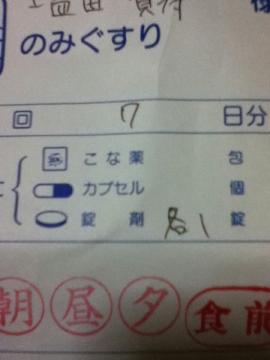 様
のみぐすり
回 7 日分
こな薬 包
カプセル 個
錠剤 各1 錠
朝 昼 夕 食前